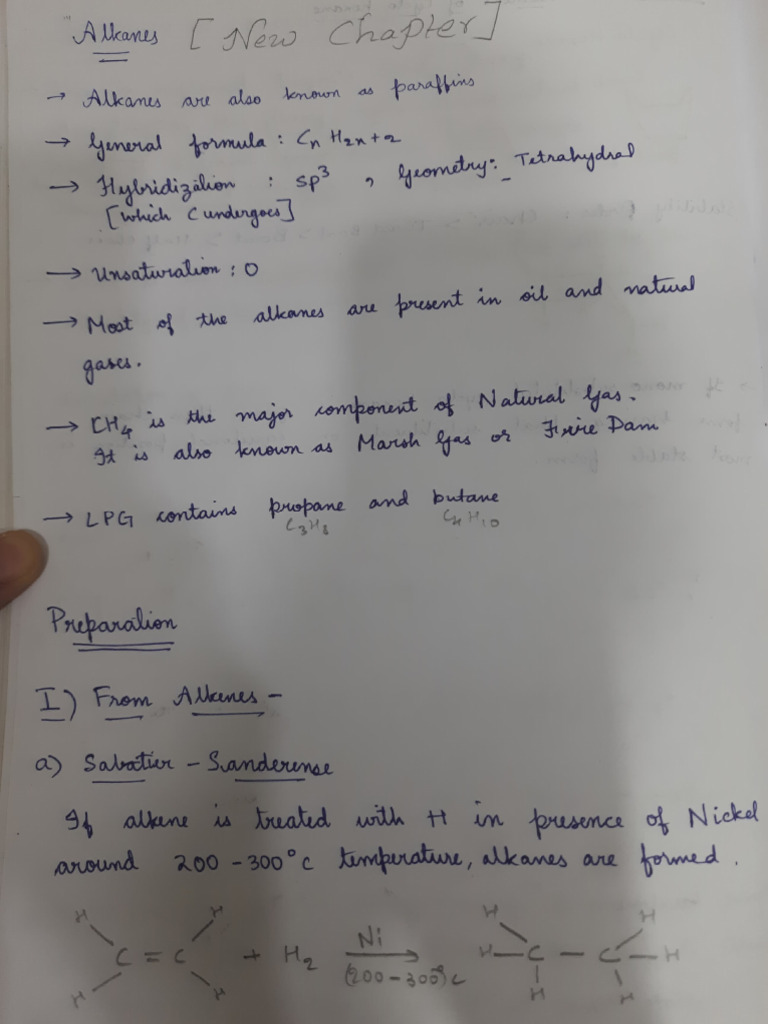 Alkanes [New Chapter]
→ Alkanes are also known as paraffins
→ General formula : CnH2n+2
→ Hybridization : sp³ , Geometry:- Tetrahydral
[which C undergoes]
→ Unsaturation : 0
→ Most of the alkanes are present in oil and natural
gases.
→ CH₄ is the major component of Natural Gas.
It is also known as Marsh Gas or Firire Dam
→ LPG contains propane and butane
C₃H₈ C₄H₁₀
Preparation
I) From Alkenes -
a) Sabatier - Sanderense
If alkene is treated with H in presence of Nickel
around 200 - 300°C temperature, alkanes are formed.
H H H H
C = C + H₂ Ni → H - C - C - H
(200 - 300°)C
H H H H